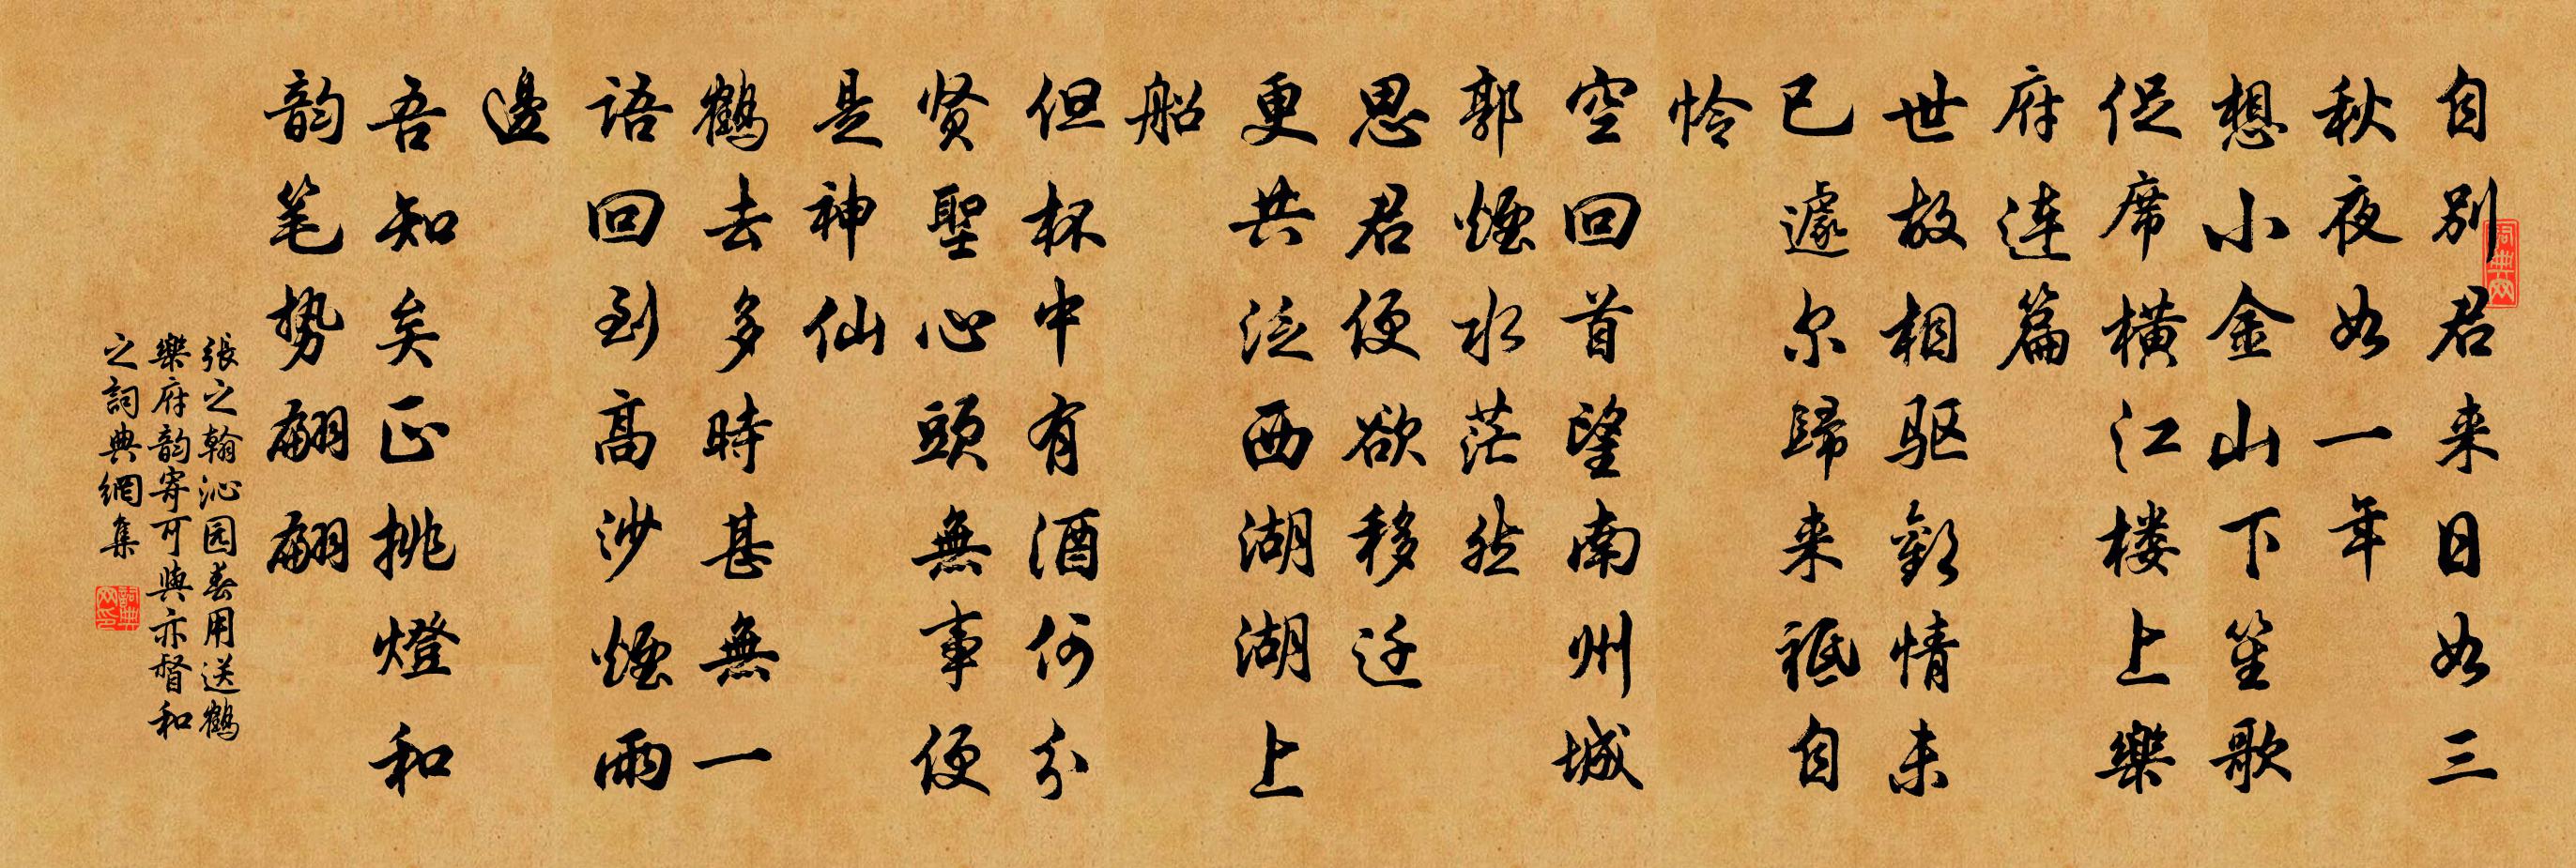 自别君来日如三
秋夜如一年
想小金山下笙歌
促席横江楼上樂
府连篇
世故相驱欢情未
已遽尔歸来祗自
怜
空回首望南州城
郭煙水茫然
思君便欲移迁
更共泛西湖湖上
船
但杯中有酒何分
贤聖心頭無事便
是神仙
鶴去多時甚無一
语回到高沙煙雨
邊
吾知矣正挑燈和
韵笔势翩翩
張之翰沁园春用送鶴
樂府韵寄可與亦督和
之詞典網集